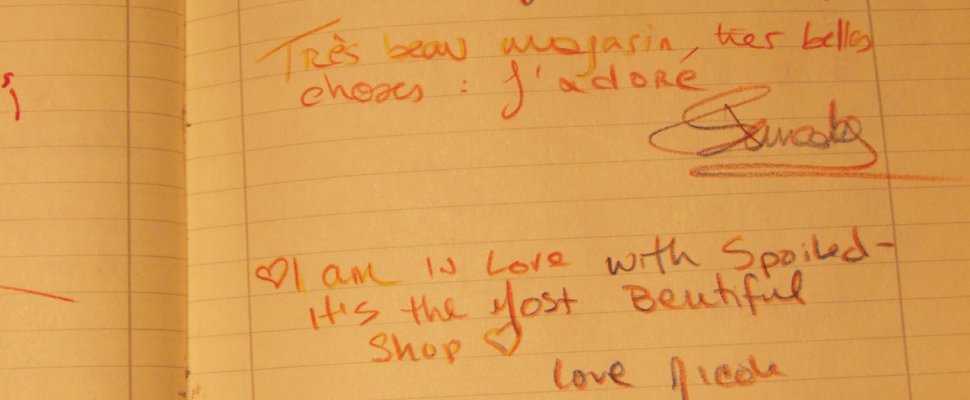 Très beau magasin, tres belles
choses : J'adoré
♡ I am IN Love with Spoiled-
It's the Most Beutiful
Shop ♡
Love Nicole